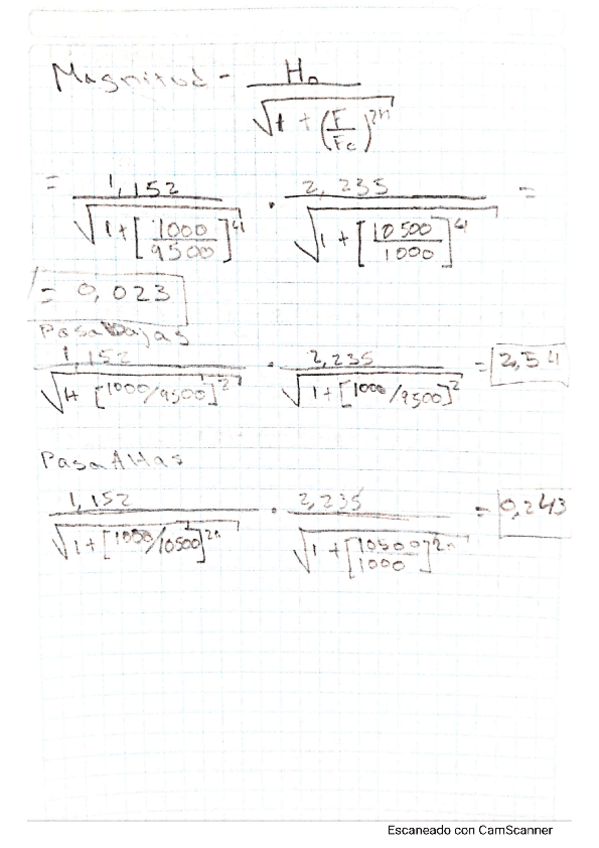 Magnitud - H₀ / √(1 + (F/Fc)^2n)
= 1,152 / √(1+[1000/9500]^4) · 2,235 / √(1+[10500/1000]^4) =
= 0,023
Pasa Bajas
1,152 / √(1+[1000/9500]^2) · 2,235 / √(1+[1000/9500]^2) = 2,54
Pasa Altas
1,152 / √(1+[1000/10500]^2n) · 2,235 / √(1+[10500/1000]^2n) = 0,243
Escaneado con CamScanner